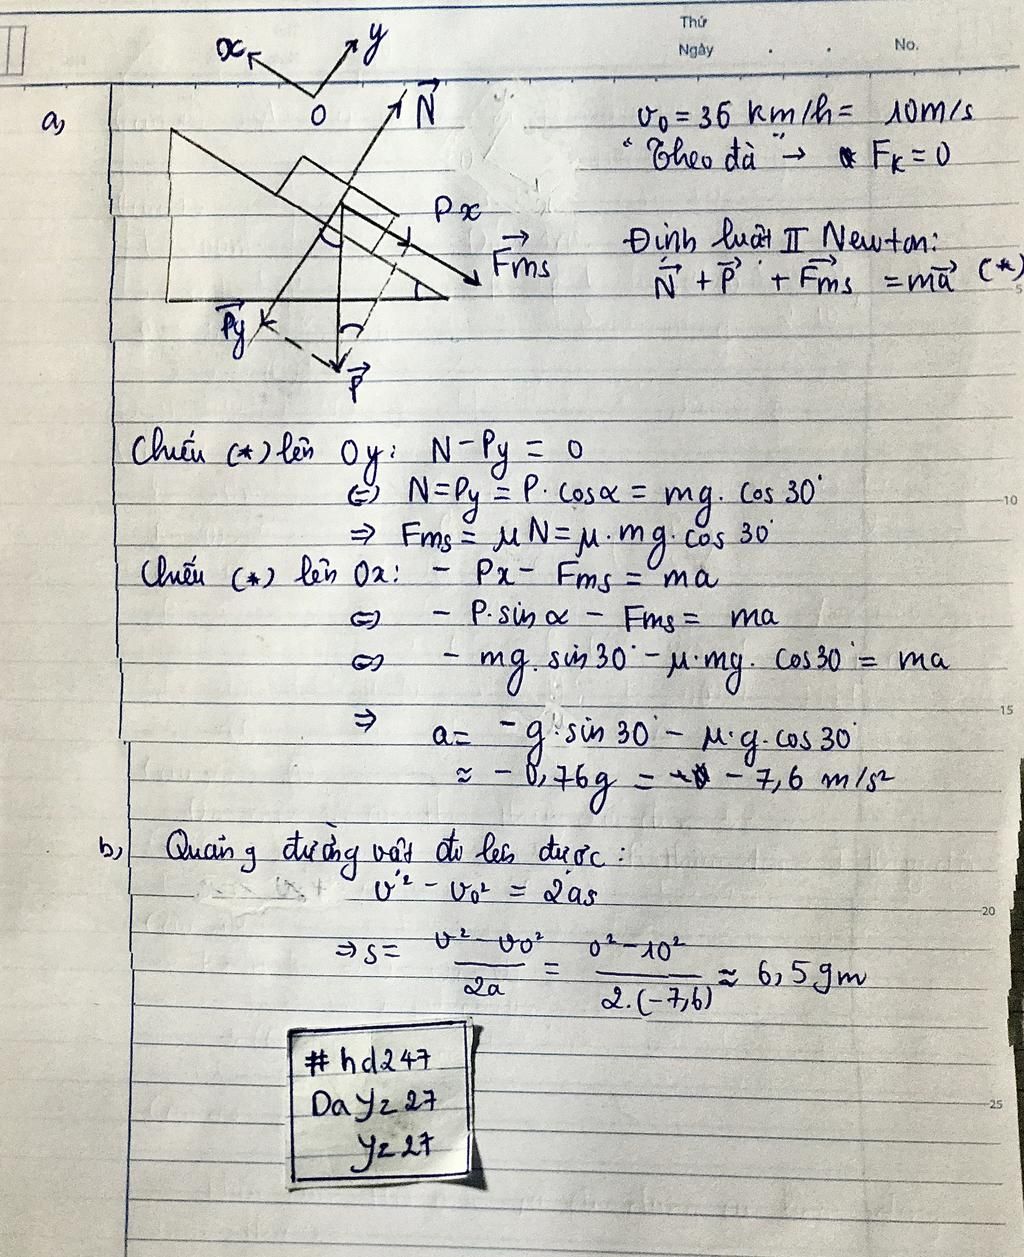 Thứ
Ngày . . No.
a,
x y
O
N
v₀ = 36 km/h = 10m/s
"Theo đà" → F_K = 0
Px
Fms
Định luật II Newton:
N + P + Fms = ma (*)
Py
P
5
Chiếu (*) lên Oy: N - Py = 0
⇔ N = Py = P. cosα = mg. cos 30°
10
⇒ Fms = μN = μ.mg.cos 30°
Chiếu (*) lên Ox: - Px - Fms = ma
⇔ - P.sin α - Fms = ma
⇔ - mg. sin 30° - μ.mg. cos 30° = ma
15
⇒ a = - g.sin 30° - μ.g.cos 30°
≈ - 0,76g = - 7,6 m/s²
b, Quãng đường vật đi lên được:
v² - v₀² = 2as
20
⇒ s = (v² - v₀²)/2a = (0² - 10²)/2.(-7,6) ≈ 6,59m
#hd247
DaYz27
Yz27
25